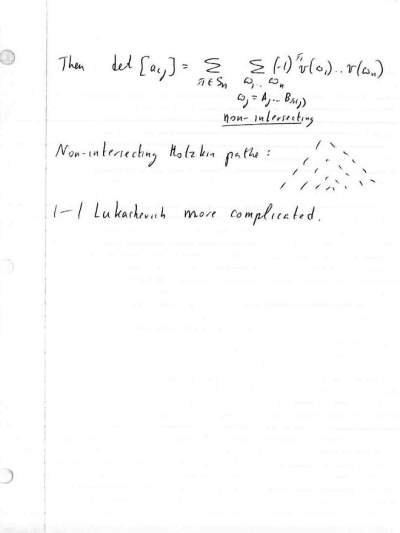 Then det [a_{ij}] = Σ_{π∈S_n} Σ_{ω_1..ω_n} (-1)^π v(ω_1)..v(ω_n)
ω_j = A_j...B_{π(j)}
non-intersecting
Non-intersecting Motzkin paths:
1-1 Lukashevich more complicated.